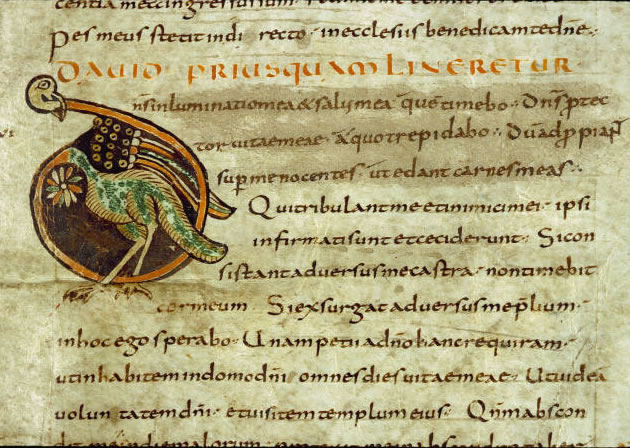 centia me C ingressus sum
Pes meus stetit indi recto · in ecclesiis benedicam te dne ·
DAUID PRIUSQUAM LINERETUR
D
ns inluminatio mea & salus mea quē timebo · Dns ptec
tor uitae meae · a quo trepidabo · Dū adp piant
sup me nocentes · ut edant carnes meas ·
Qui tribulant me et inimici mei · ipsi
infirmati sunt et ceciderunt · Si con
sistant aduersus me castra · non timebit
cor meum Si exsurgat aduersus me plium ·
in hoc ego sperabo · Unam petii a dño hanc requiram ·
ut inhabitem in domo dñi omnes dies uitae meae · Ut uideā
voluntatem dñi · et uisitem templum eius · Qnm abscon
dit me malorum